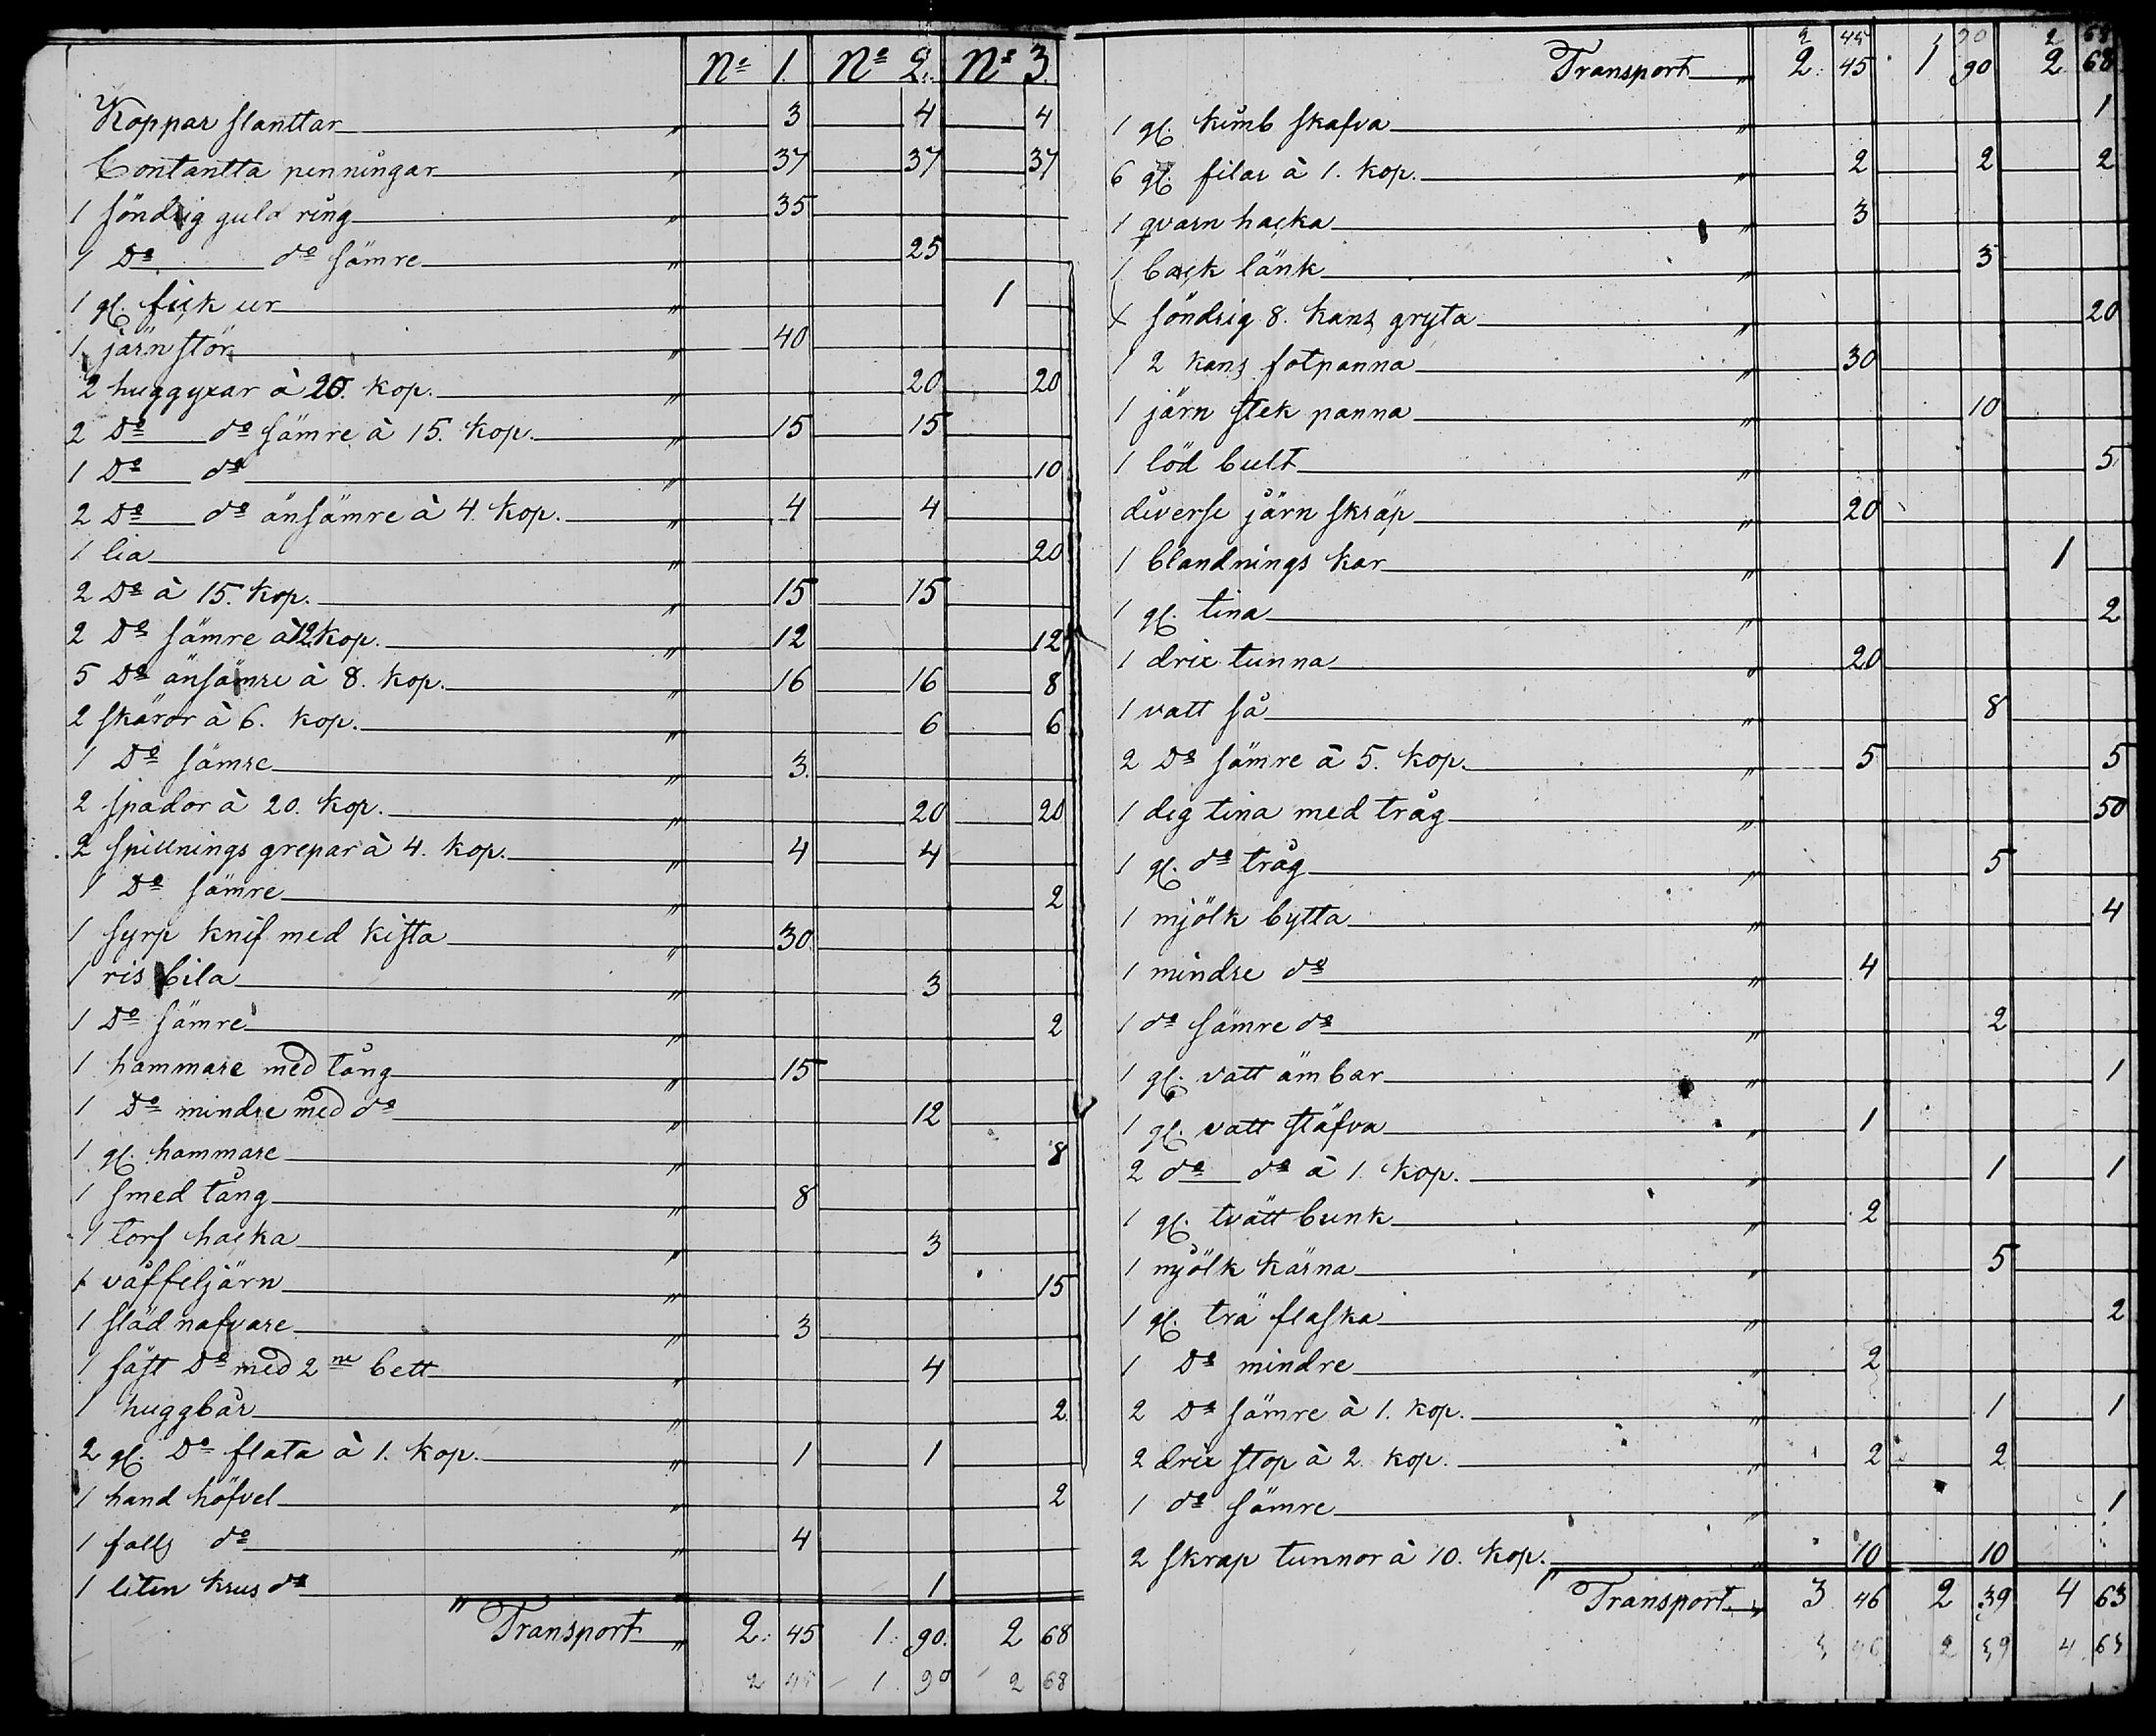 No 1. No 2. No 3.
Koppar slanttar " 3 4 4
Contantta penningar " 37 37 37
1 söndrig guld ring " 35
1 Do do sämre " 25
1 gl. fick ur " 1
1 järn stör " 40
2 huggyxar à 20. kop. " 20 20
2 Do do sämre à 15. kop. " 15 15
1 Do do " 10
2 Do do änsämre à 4 kop. " 4 4
1 lia " 20
2 Do à 15. kop. " 15 15
2 Do sämre à 12 kop. " 12 12
5 Do änsämre à 8. kop. " 16 16 8
2 skäror à 6. kop. " 6 6
1 Do sämre " 3
2 spador à 20. kop. " 20 20
2 spillnings grepar à 4. kop. " 4 4
1 Do sämre " 2
1 syrp knif med kista " 30
1 ris bila " 3
1 Do sämre " 2
1 hammare med tång " 15
1 Do mindre med do " 12
1 gl. hammare " 8
1 smed tång " 8
1 torf hacka " 3
1 våffeljärn " 15
1 släd nafvare " 3
1 fäst Do med 2ne bett " 4
1 huggbår " 2
2 gl. Do flata à 1. kop. " 1 1
1 hand höfvel " 2
1 falls do " 4
1 liten krus do " 1
" Transport " 2: 45 1: 90. 2 68
2 45 1 90 2 68
2 45 1 90 2 68
Transport " 2: 45 1 90 2 68
1 gl. kimb skafva " 1
6 gl. filar à 1. kop. " 2 2 2
1 qvarn hacka " 3
1 back länk " 3
1 söndrig 8. kans gryta " 20
1 2 kans fotpanna " 30
1 järn stek panna " 10
1 löd bult " 5
diverse järn skräp " 20
1 blandnings kar " 1
1 gl. tina " 2
1 drix tunna " 20
1 vatt så " 8
2 Do sämre à 5. kop. " 5 5
1 deg tina med tråg " 50
1 gl. do tråg " 5
1 mjölk bytta " 4
1 mindre do " 4
1 do sämre do " 2
1 gl. vatt ämbar " 1
1 gl. vatt stäfva " 1
2 do do à 1. kop. " 1 1
1 gl. tvätt bunk " 2
1 mjölk kärna " 5
1 gl. trä flaska " 2
1 Do mindre " 2
2 Do sämre à 1. kop. " 1 1
2 drix stop à 2 kop. " 2 2
1 do sämre " 1
2 skrap tunnor à 10. kop. " 10 10
" Transport " 3 46 2 39 4 63
3 46 2 39 4 63